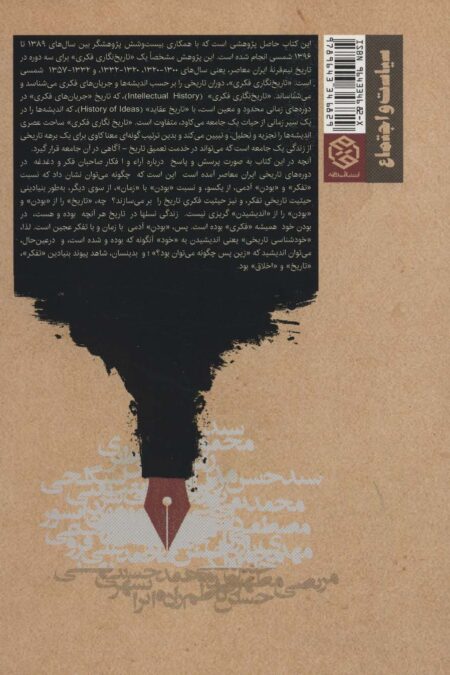 این کتاب حاصل پژوهشی است که با همکاری بیست‌وشش پژوهشگر بین سال‌های ۱۳۸۹ تا
۱۳۹۶ شمسی انجام شده است. این پژوهش مشخصاً یک «تاریخ‌نگاری فکری» برای سه دوره در
تاریخ نیم‌قرنهٔ ایران معاصر، یعنی سال‌های ۱۳۰۰-۱۳۲۰، ۱۳۲۰-۱۳۳۲، و ۱۳۳۲-۱۳۵۷ شمسی
است: «تاریخ‌نگاری فکری»، دوران تاریخی را بر حسب اندیشه‌ها و جریان‌های فکری می‌شناسد و
می‌شناساند. «تاریخ‌نگاری فکری» (Intellectual History)، که تاریخ «جریان‌های فکری» در
دوره‌های زمانی محدود و معین است، با «تاریخ عقاید» (History of Ideas)، که اندیشه‌ها را در
یک سیر زمانی از حیات یک جامعه می‌کاود، متفاوت است. «تاریخ نگاری فکری» ساحت عصری
اندیشه‌ها را تجزیه و تحلیل، و تبیین می‌کند و بدین ترتیب گونه‌ای معنا کاوی برای یک برهه تاریخی
از زندگی یک جامعه است که می‌تواند در خدمت تعمیق تاریخ - آگاهی در آن جامعه قرار گیرد.
آنچه در این کتاب به صورت پرسش و پاسخ درباره آراء و افکار صاحبان فکر و دغدغه در
دوره‌های تاریخی ایران معاصر آمده است این است که چگونه می‌توان نشان داد که نسبت
«تفکر» و «بودن» آدمی، از یکسو، و نسبت «بودن» با «زمان»، از سوی دیگر، به‌طور بنیادینی
حیثیت تاریخی تفکر، و نیز حیثیت فکری تاریخ را بر می‌سازند؟ چه، «تاریخ» را از «بودن» و
«بودن» را از «اندیشیدن» گریزی نیست. زندگی نسلها در تاریخ هر آنچه بوده و هست، در
بودن خود همیشه «فکری» بوده است. پس، «بودن» آدمی با زمان و با تفکر عجین است. لذا،
«خودشناسی تاریخی» یعنی اندیشیدن به «خود» آنگونه که بوده و شده است، و درعین‌حال،
می‌توان اندیشید که «زین پس چگونه می‌توان بود؟» ؛ و بدینسان، شاهد پیوند بنیادین «تفکر»،
«تاریخ» و «اخلاق» بود.
سیاست و اجتماع